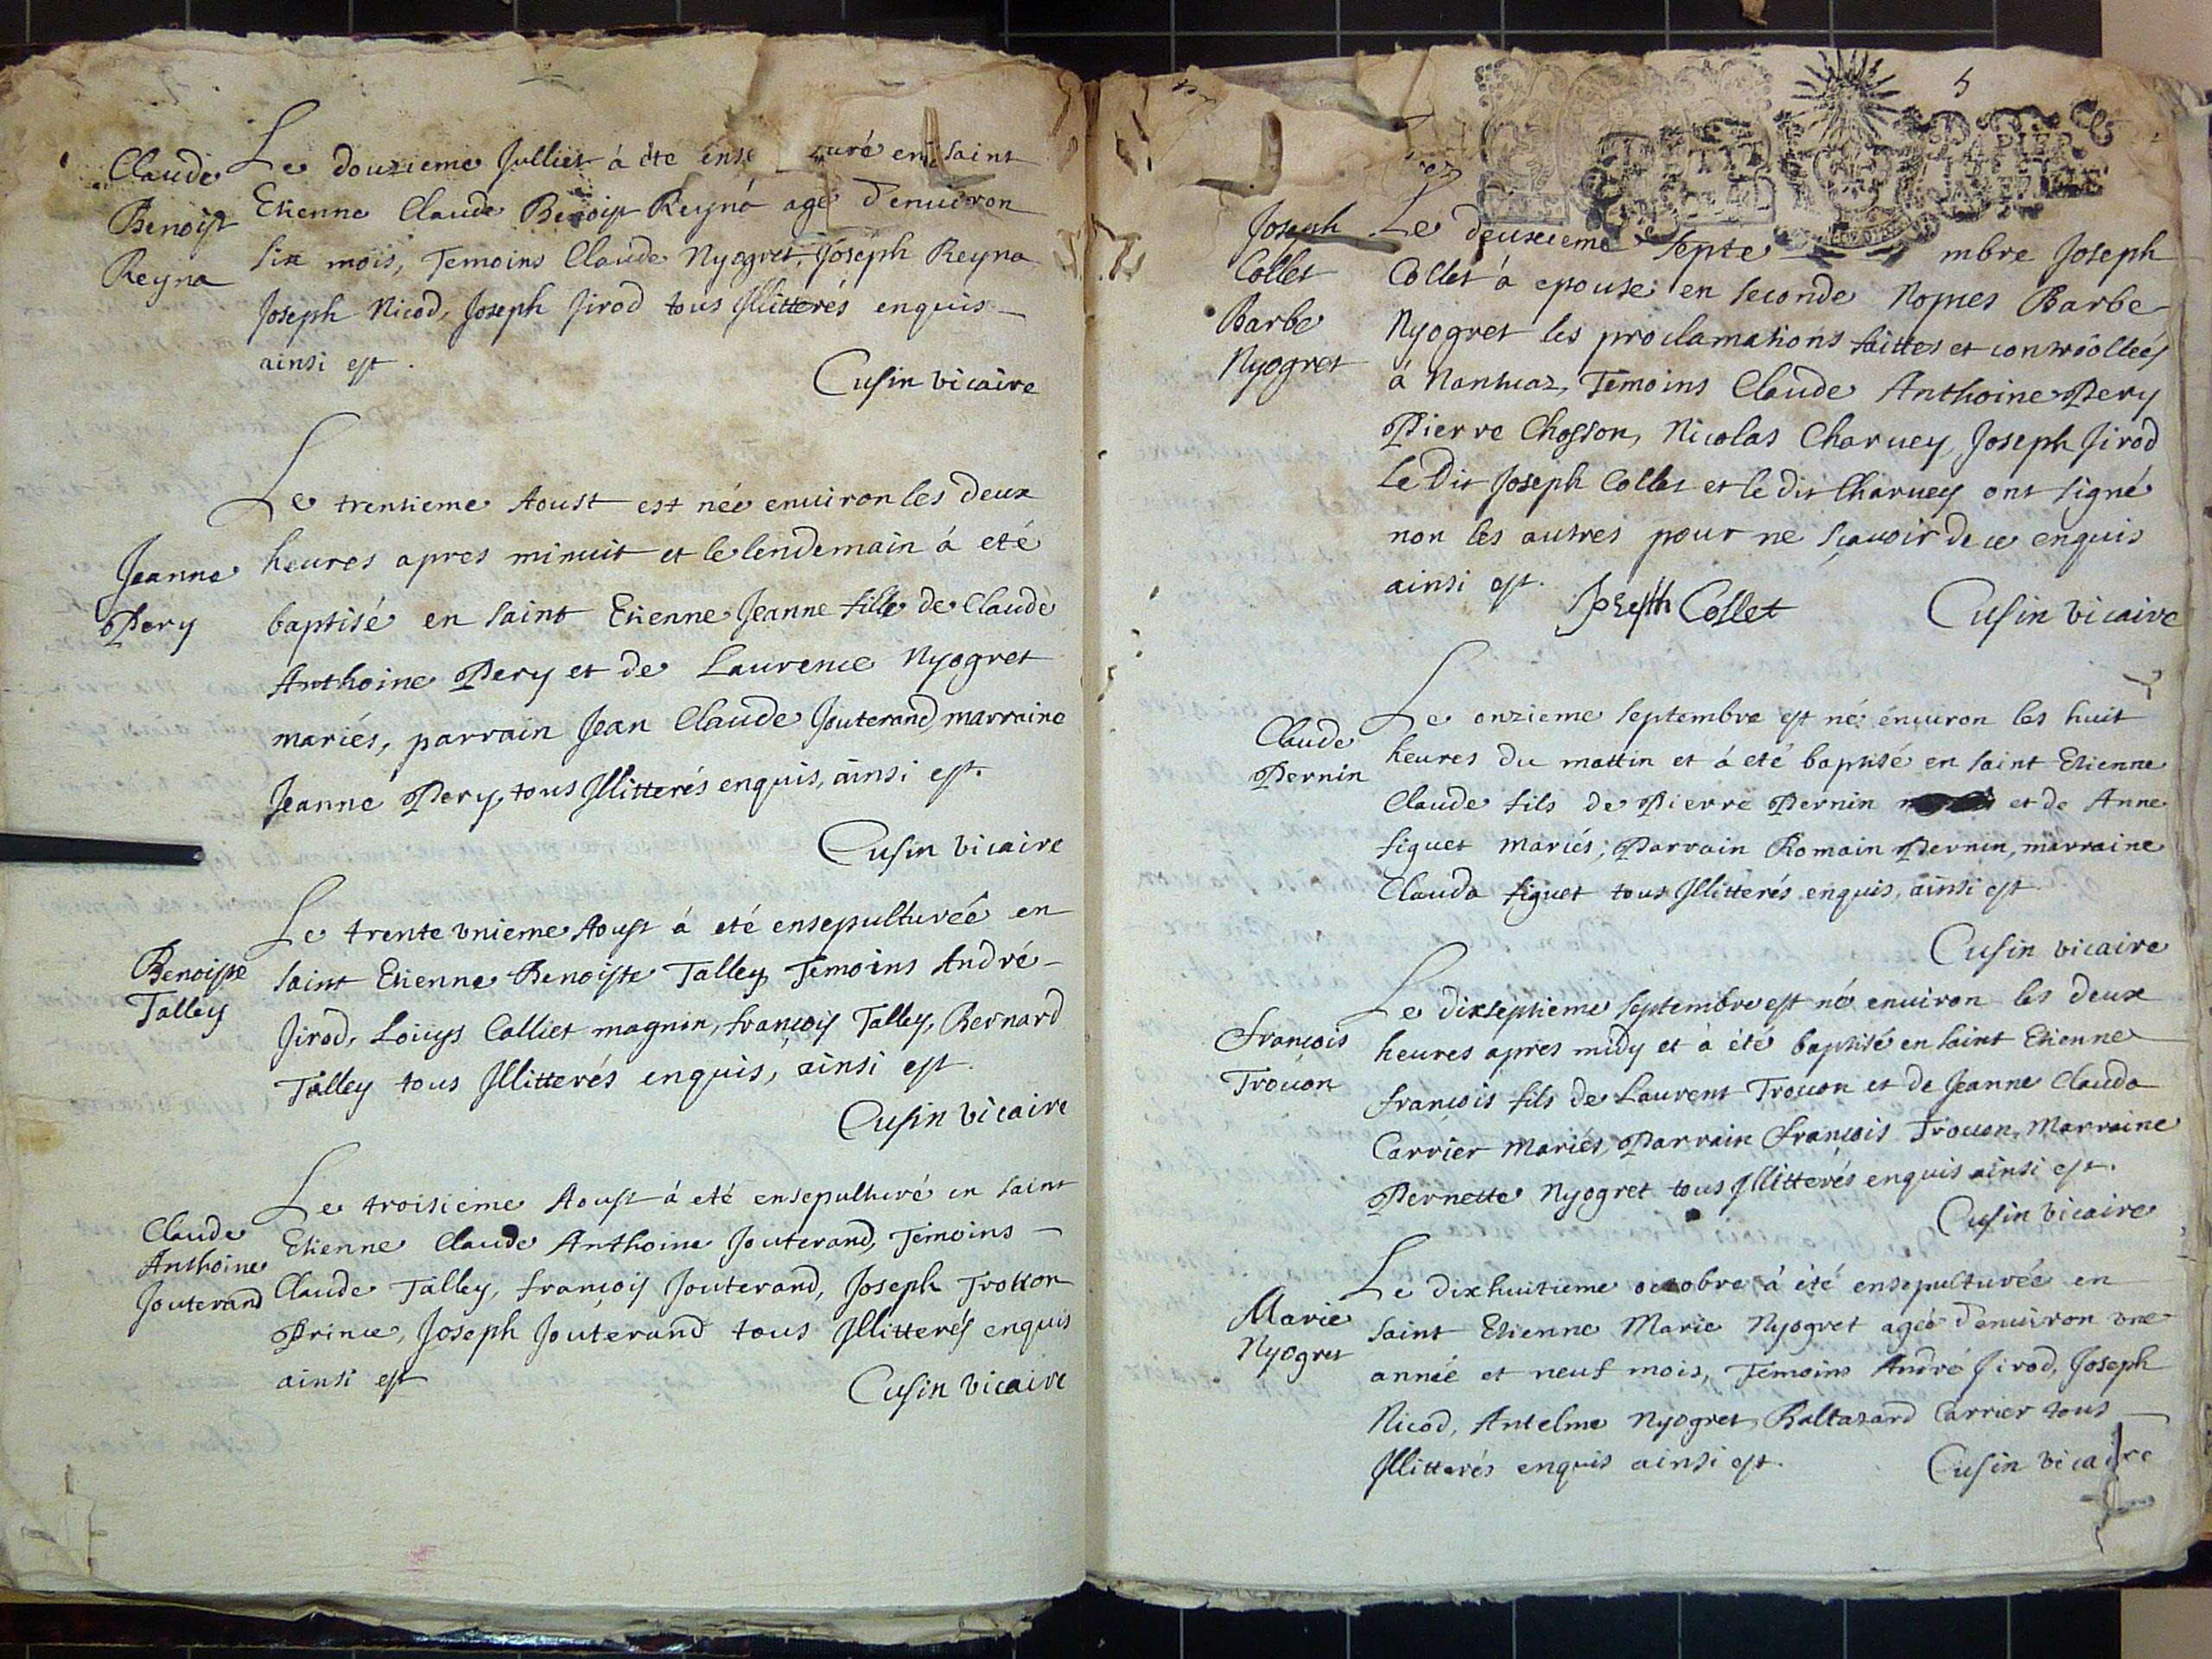 Claude
Benoist
Reyna
Le douzieme Julliet à ete ense turé en saint
Etienne Claude Benoist Reyna agé d'enuiron
six mois, Temoins Claude Nyogret, Joseph Reyna
Joseph Nicod, Joseph Jirod tous Jllitterés enquis
ainsi est.
Cusin vicaire
Jeanne
Pery
Le trentieme Aoust est née enuiron les deux
heures apres minuit et le lendemain à eté
baptisé en saint Etienne Jeanne fille de Claude
Anthoine Pery et de Laurence Nyogret
mariés, parrain Jean Claude Jouterand, marraine
Jeanne Pery, tous Jllitterés enquis, ainsi est.
Cusin vicaire
Benoiste
Talley
Le trente vnieme Aoust à eté ensepulturée en
saint Etienne Benoiste Talley, Temoins André
Jirod, Loüys Colliet magnin, françois Talley, Bernard
Talley tous Jllitterés enquis, ainsi est.
Cusin vicaire
Claude
Anthoine
Jouterand
Le troisieme Aoust à eté ensepulturé en saint
Etienne Claude Anthoine Jouterand, Temoins
Claude Talley, françois Jouterand, Joseph
Prince, Joseph Jouterand tous Jllitterés enquis
ainsi est
Cusin vicaire
5
Joseph
Collet
Barbe
Nyogret
Le deuxieme septe mbre Joseph
Collet à epousé en seconde Nopces Barbe
Nyogret les proclamations faittes et controolleés
à Nantuaz, Temoins Claude Anthoine Pery
Pierre Chosson, Nicolas Charuey, Joseph Jirod
Le dit Joseph Collet et le dit Charuey ont signé
non les autres pour ne sçauoir de ce enquis
ainsi est.
Joseph Collet
Cusin vicaire
Claude
Pernin
Le onzieme septembre est né enuiron les huit
heures du mattin et à eté baptisé en saint Etienne
Claude fils de Pierre Pernin et de Anne
figuet mariés, Parrain Romain Pernin, marraine
Clauda figuet tous Jllitterés enquis, ainsi est.
Cusin vicaire
François
Trouon
Le dixseptieme septembre est né enuiron les deux
heures apres midy et à été baptisé en saint Etienne
françois fils de Laurent Trouon et de Jeanne Clauda
Carrier mariés, Parrain françois Trouon, Marraine
Pernette Nyogret tous Jllitterés enquis ainsi est.
Cusin vicaire
Marie
Nyogret
Le dixhuitieme octobre à été ensepulturée en
saint Etienne Marie Nyogret agée d'enuiron vne
année et neuf mois, Temoins André Jirod, Joseph
Nicod, Antelme Nyogret, Baltazard Carrier tous
Jllitterés enquis ainsi est.
Cusin vicaire